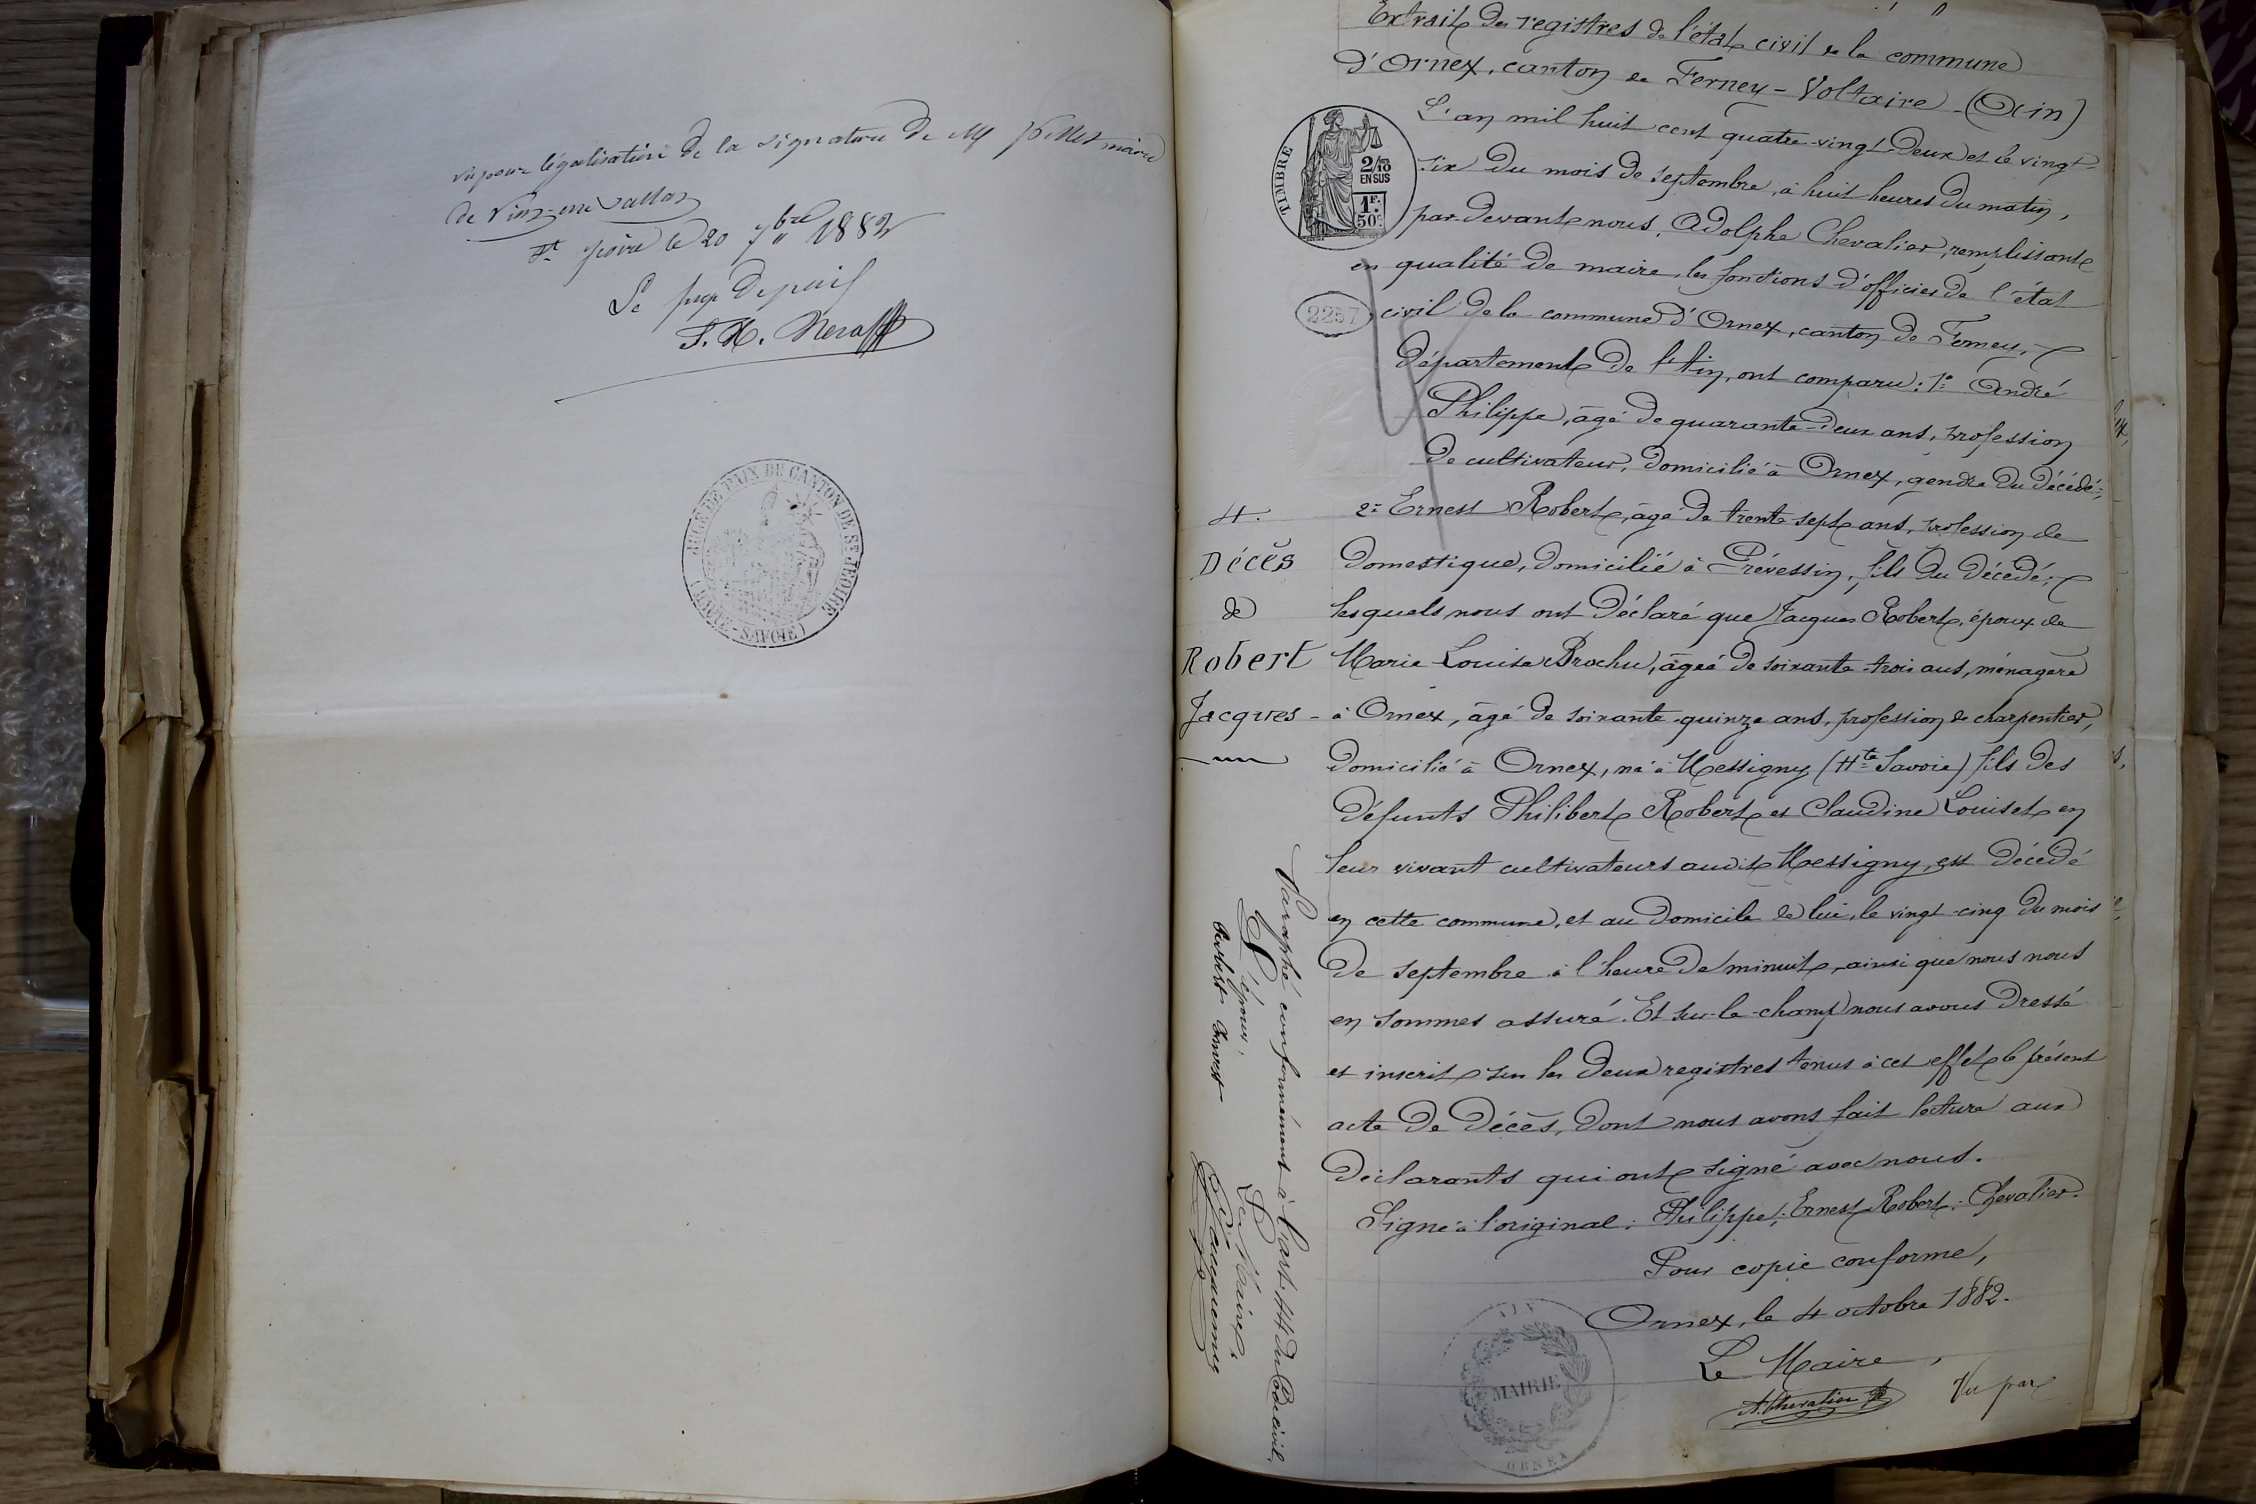 vu pour légalisation de la signature de M Pillet maire
de Viuz-en-Sallaz
St Jeoire le 20 7bre 1882
Le juge de paix
JUGE DE PAIX DE CANTON DE ST JEOIRE
(HAUTE-SAVOIE)
Extrait des registres de l'état civil de la commune
d'Ornex, canton de Ferney-Voltaire (Ain)
L'an mil huit cent quatre-vingt-deux et le vingt-
six du mois de septembre, à huit heures du matin,
par-devant nous, Adolphe Chevalier, remplissant
en qualité de maire, les fonctions d'officier de l'état
civil de la commune d'Ornex, canton de Ferney,
département de l'Ain, ont comparu: 1° André
Philippe, âgé de quarante-deux ans, profession
de cultivateur, domicilié à Ornex, gendre du décédé;
2° Ernest Robert, âgé de trente sept ans, profession de
domestique, domicilié à Prévessin, fils du décédé;
lesquels nous ont déclaré que Jacques Robert, époux de
Marie Louise Brochu, âgée de soixante-trois ans, ménagère
à Ornex, âgé de soixante-quinze ans, profession de charpentier,
domicilié à Ornex, né à Messigny (Hte Savoie) fils des
défunts Philibert Robert et Claudine Louiset en
leur vivant cultivateurs audit Messigny, est décédé
en cette commune, et au domicile de lui, le vingt-cinq du mois
de septembre à l'heure de minuit, ainsi que nous nous
en sommes assuré. Et sur-le-champ nous avons dressé
et inscrit sur les deux registres tenus à cet effet le présent
acte de décès, dont nous avons fait lecture aux
déclarants qui ont signé avec nous.
Signé à l'original: Philippe; Ernest Robert. Chevalier.
Pour copie conforme,
Ornex, le 4 octobre 1882.
Le Maire,
A. Chevalier
Vu par
TIMBRE
2/10
EN SUS
1F.
50c.
2257
4.
Décès
de
Robert
Jacques
Paraphé conformément à l'art. 44 du Code civil,
L'époux,
Le Maire,
AIN
MAIRIE
ORNEX